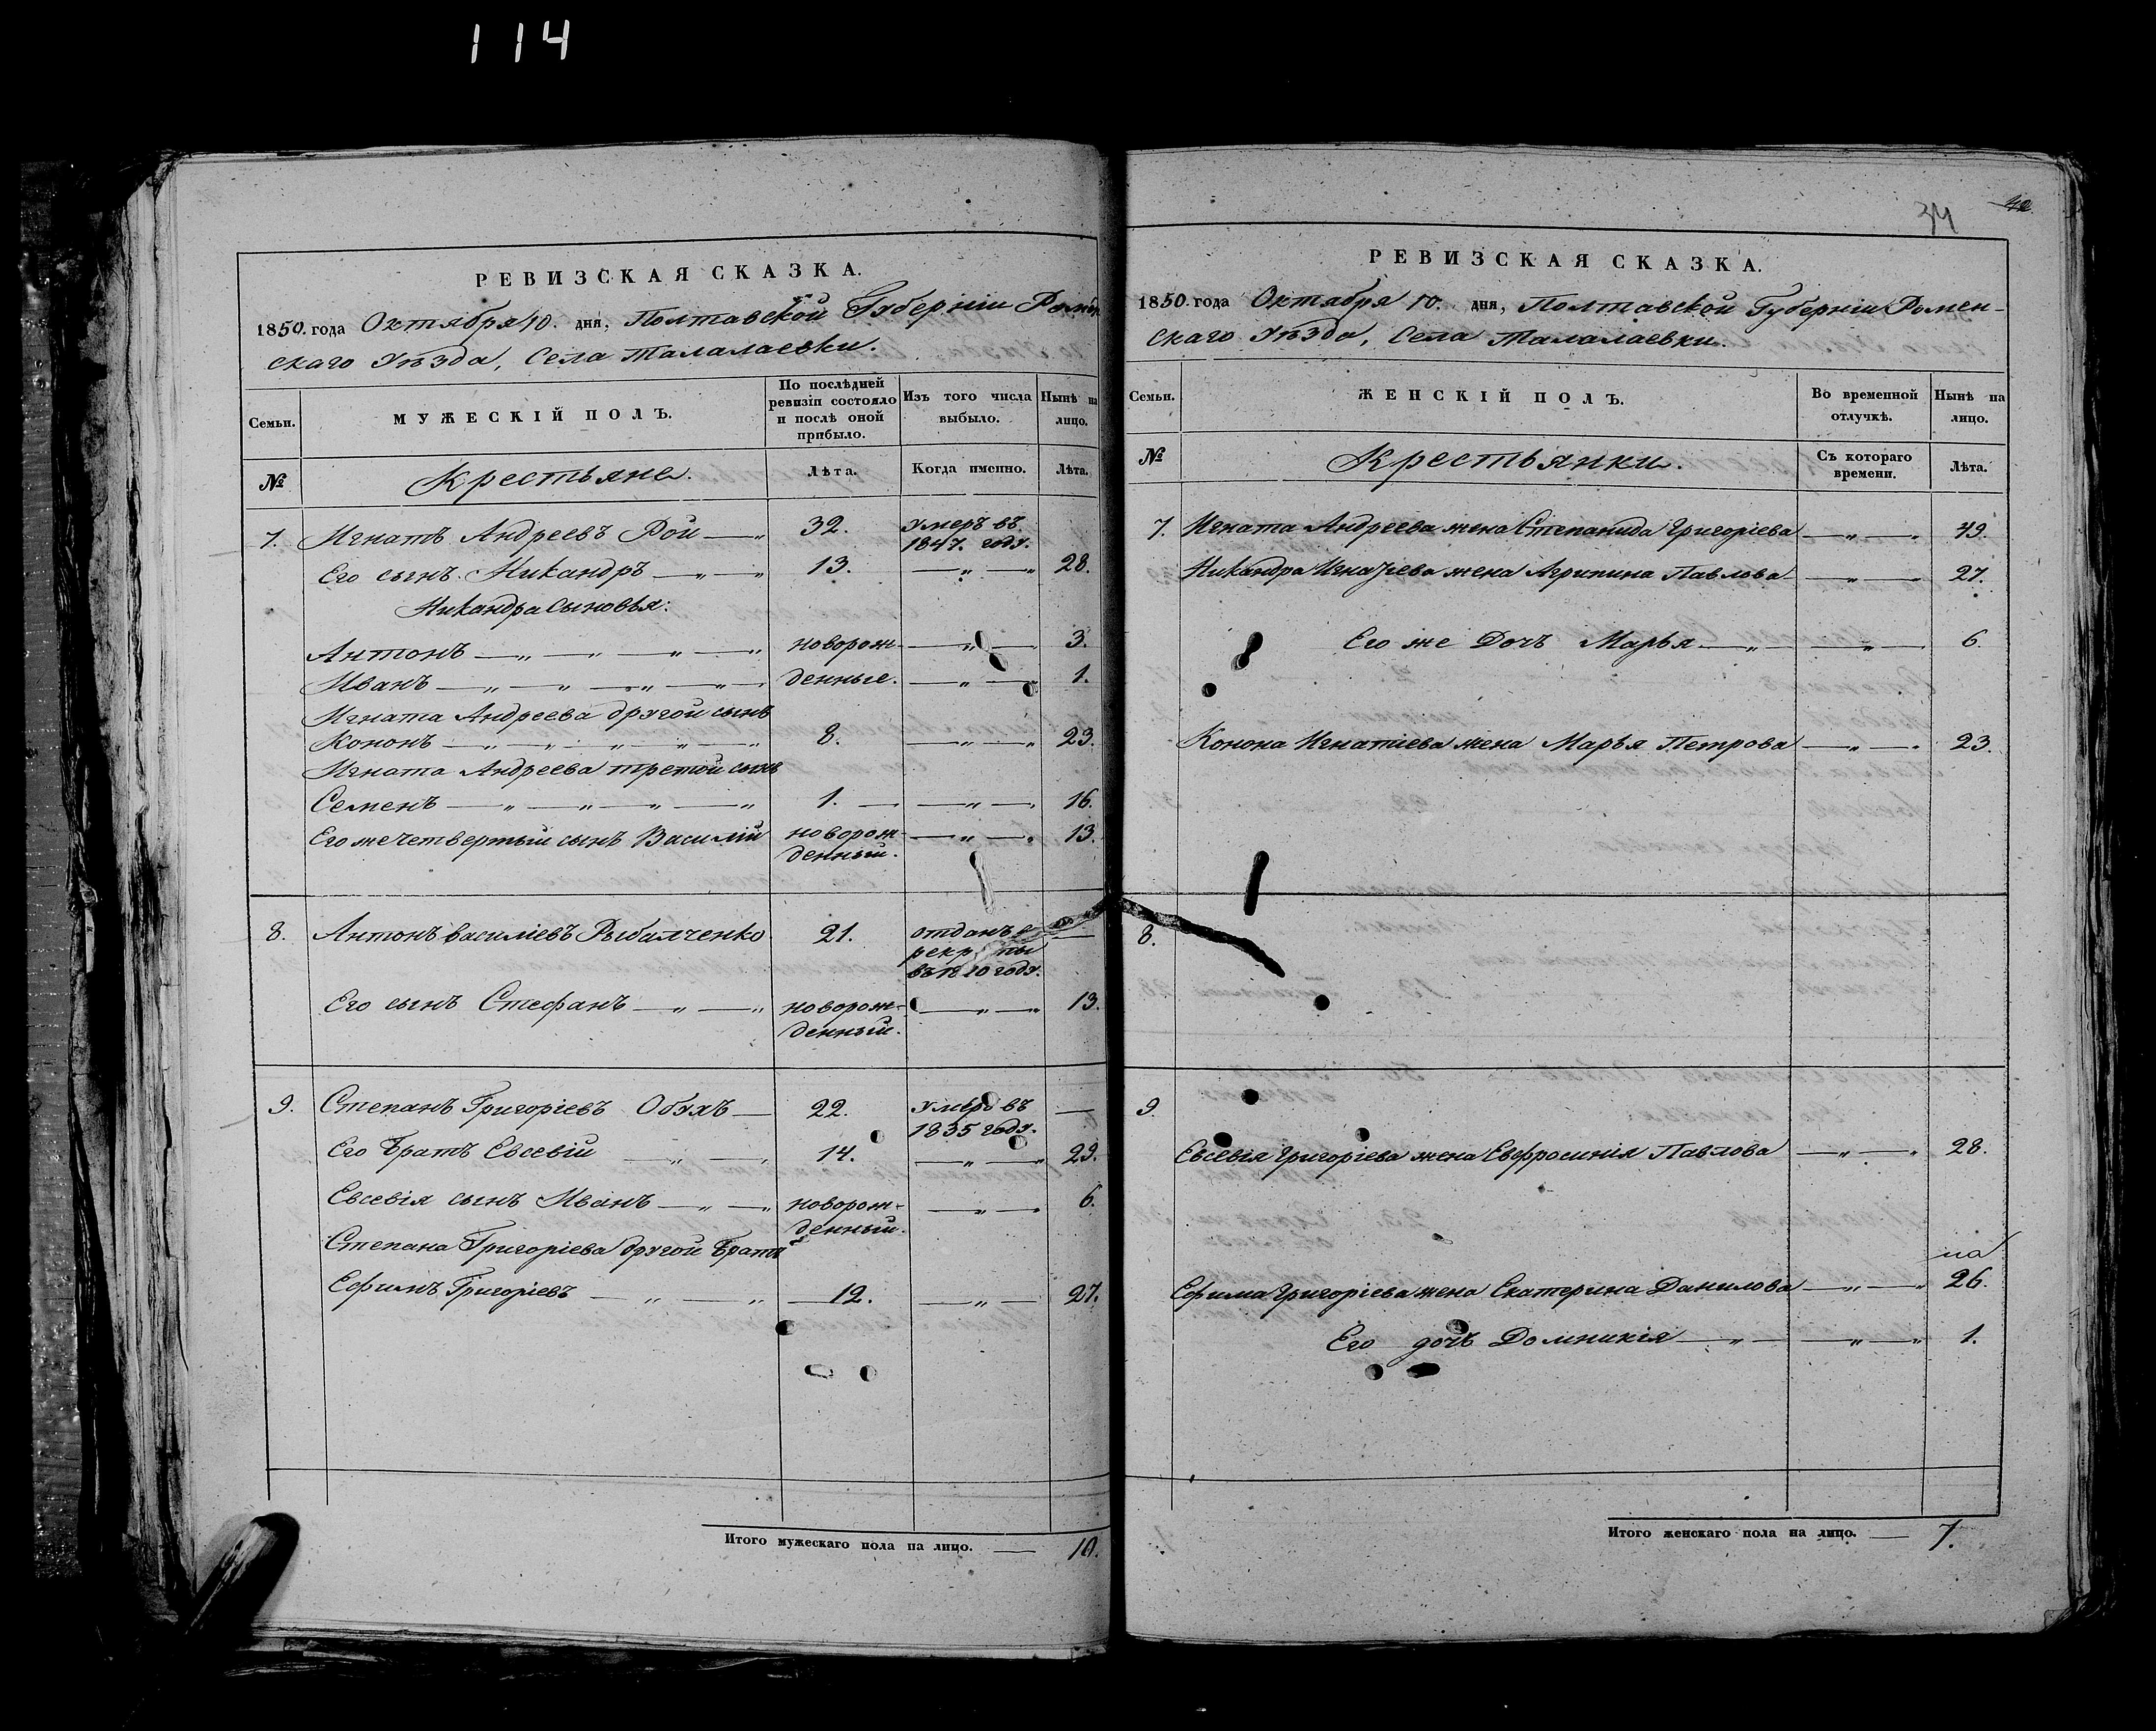 114
РЕВИЗСКАЯ СКАЗКА.
1850. года Октября 10. дня, Полтавской Губерніи Ромен
скаго Уѣзда, Села Талалаевки.
Семьи.
МУЖЕСКІЙ ПОЛЪ.
По послѣдней ревизіи состояло и послѣ оной прибыло.
Изъ того числа выбыло.
Нынѣ на лицо.
№
Крестьяне.
Лѣта.
Когда именно.
Лѣта.
7. Игнатъ Андреевъ Рой — „ 32. умеръ въ 1847. году.
Его сынъ Никандръ — „ — „ 13. — „ — „ 28.
Никандра сыновья:
Антонъ — „ — „ — „ — „ новорож- — „ — „ 3.
Иванъ — „ — „ — „ — „ денные. — „ — „ 1.
Игната Андреева другой сынъ
Кононъ — „ — „ — „ — „ — „ 8. — „ — „ 23.
Игната Андреева третій сынъ
Семенъ — „ — „ — „ — „ 1. — — „ — „ 16.
Его же четвертый сынъ Василій новорож- — „ — „ 13.
денный.
8. Антонъ Василіевъ Рыбалченко 21. отданъ в рекруты въ 18 0 году. —
Его сынъ Стефанъ — „ — „ новорож- — „ — „ 13.
денный.
9. Степанъ Григоріевъ Обухъ — 22. умеръ въ 1835 году. —
Его братъ Евсевій — „ — „ 14. — „ — „ 29.
Евсевія сынъ Иванъ — „ — „ новорож- — „ — „ 6.
денный.
Степана Григоріева другой братъ
Ефимъ Григоріевъ — „ — „ — 12. — „ — 27.
Итого мужескаго пола на лицо. — 10.
34
42
РЕВИЗСКАЯ СКАЗКА.
1850. года Октября 10. дня, Полтавской Губерніи Ромен-
скаго Уѣзда, Села Талалаевки.
Семьи.
ЖЕНСКІЙ ПОЛЪ.
Во временной отлучкѣ.
Нынѣ на лицо.
№
Крестьянки.
Съ котораго времени.
Лѣта.
7. Игната Андреева жена Степанида Григоріева — „ — „ 49.
Никандра Игнатіева жена Агрипина Павлова — „ — „ 27.
Его же Дочь Марья — „ — — „ — „ 6.
Конона Игнатіева жена Марья Петрова — „ — „ 23.
8.
9.
Евсевія Григоріева жена Евфросинія Павлова — „ — „ 28.
Ефима Григоріева жена Екатерина Данилова — „ — „ 26.
Его дочь Домникія — „ — — „ — „ 1.
Итого женскаго пола на лицо. — 7.